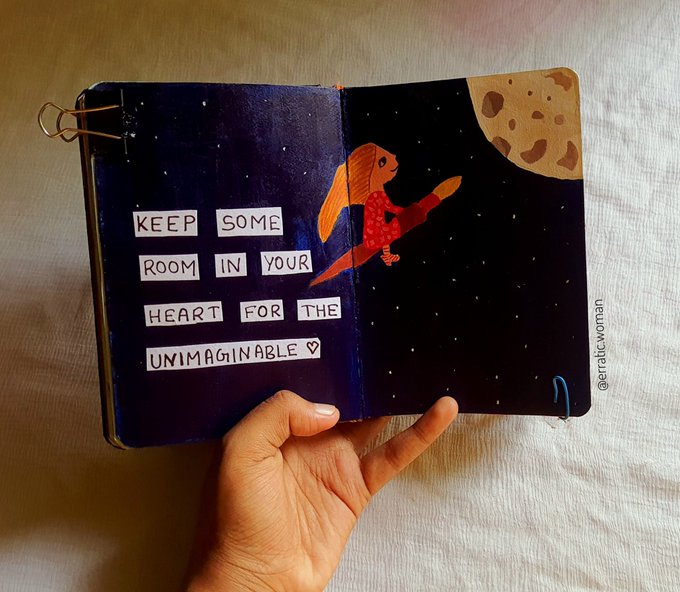 KEEP SOME
ROOM IN YOUR
HEART FOR THE
UNIMAGINABLE ♡
@erratic.woman